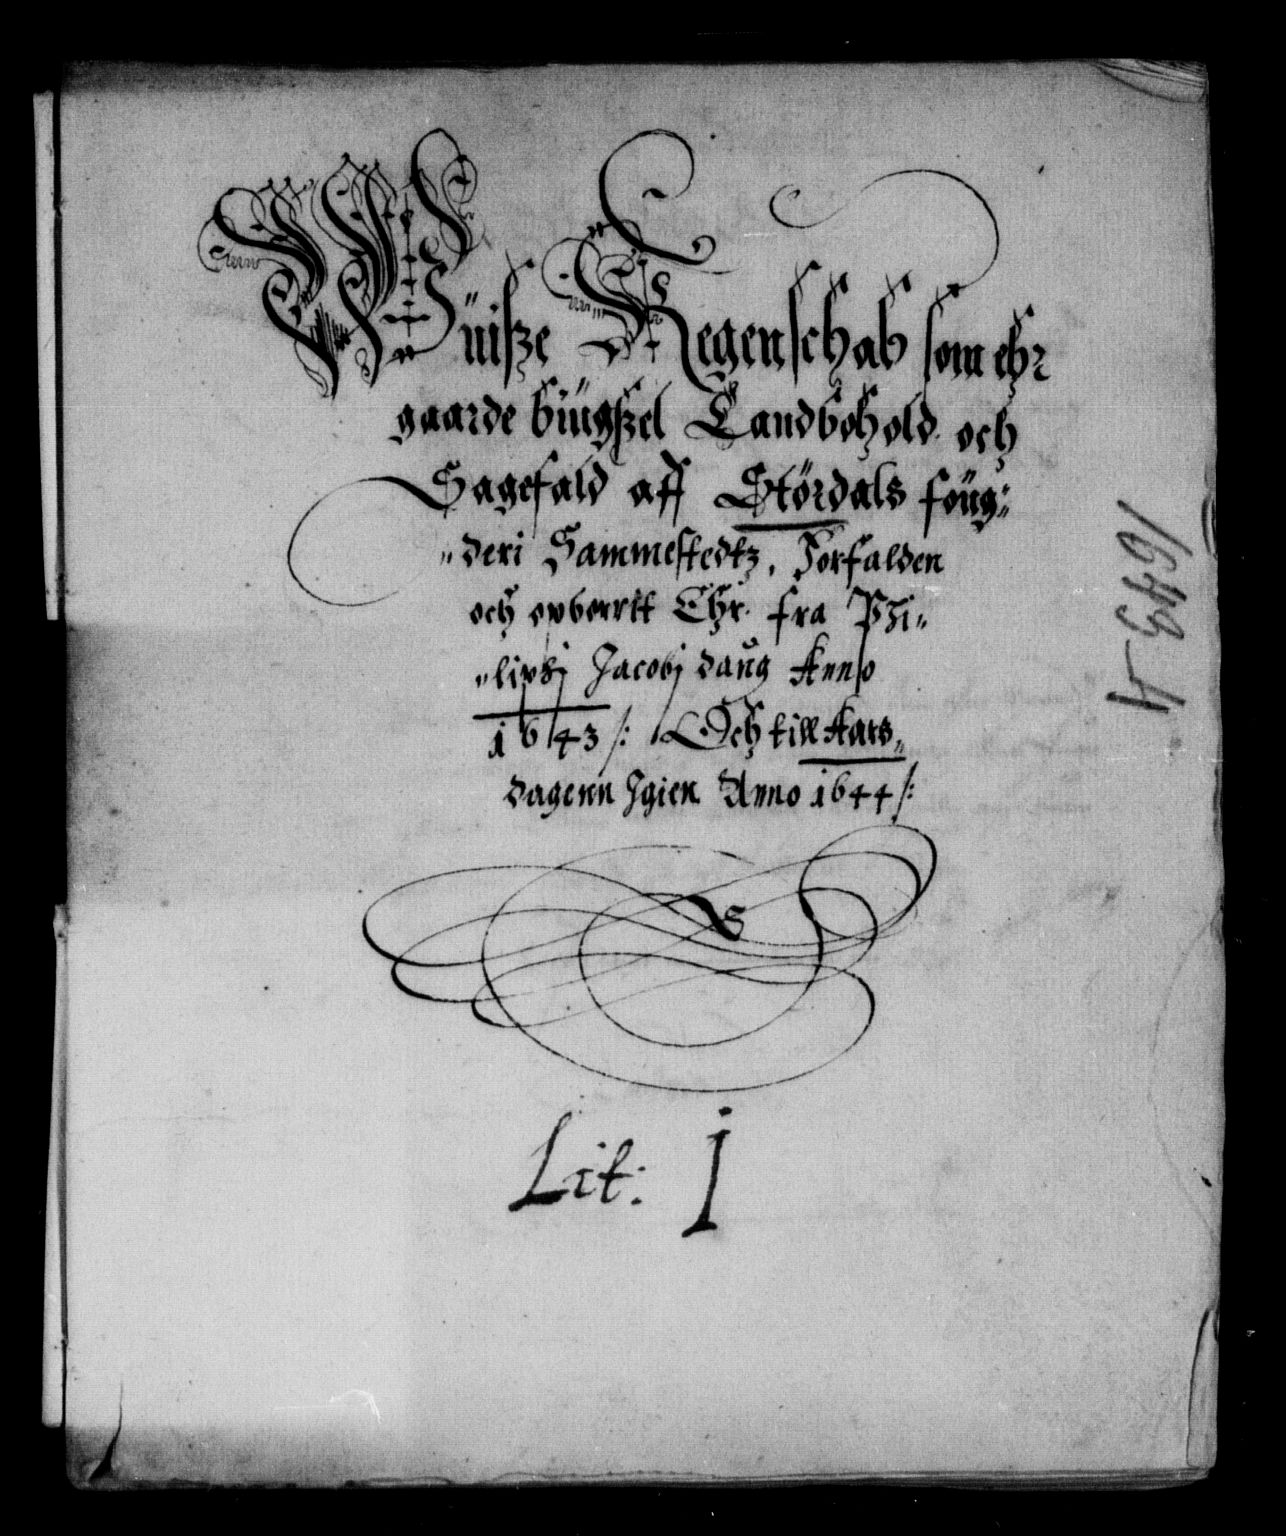 Wüisze Regenschab som ehr
gaarde büügszel Landbohold och
Sagefald aff Stördals föug:
"deri Sammestedtz, Forfalden
och opborrit Ehr fra Phi"
"lipsj Jacobj daug Anno
1643 /: Och till Aars"
dagenn Igien Anno 1644 /:
Lit: J
1643-4